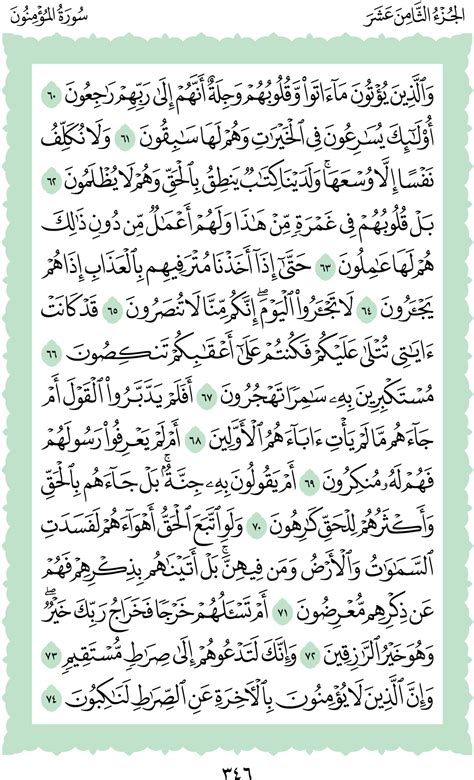 الجُزْءُ الثَّامِنَ عَشَرَ
سُورَةُ المُؤْمِنُونَ
وَٱلَّذِينَ يُؤْتُونَ مَآءَاتَوا۟ وَّقُلُوبُهُمْ وَجِلَةٌ أَنَّهُمْ إِلَىٰ رَبِّهِمْ رَٰجِعُونَ ٦٠
أُو۟لَٰٓئِكَ يُسَٰرِعُونَ فِى ٱلْخَيْرَٰتِ وَهُمْ لَهَا سَٰبِقُونَ ٦١ وَلَا نُكَلِّفُ
نَفْسًا إِلَّا وُسْعَهَا ۖ وَلَدَيْنَا كِتَٰبٌ يَنطِقُ بِٱلْحَقِّ وَهُمْ لَا يُظْلَمُونَ ٦٢
بَلْ قُلُوبُهُمْ فِى غَمْرَةٍ مِّنْ هَٰذَا وَلَهُمْ أَعْمَٰلٌ مِّن دُونِ ذَٰلِكَ
هُمْ لَهَا عَٰمِلُونَ ٦٣ حَتَّىٰٓ إِذَآ أَخَذْنَا مُتْرَفِيهِم بِٱلْعَذَابِ إِذَا هُمْ
يَجْـَٔرُونَ ٦٤ لَا تَجْـَٔرُوا۟ ٱلْيَوْمَ ۖ إِنَّكُم مِّنَّا لَا تُنصَرُونَ ٦٥ قَدْ كَانَتْ
ءَايَٰتِى تُتْلَىٰ عَلَيْكُمْ فَكُنتُمْ عَلَىٰٓ أَعْقَٰبِكُمْ تَنكِصُونَ ٦٦
مُسْتَكْبِرِينَ بِهِۦ سَٰمِرًا تَهْجُرُونَ ٦٧ أَفَلَمْ يَدَّبَّرُوا۟ ٱلْقَوْلَ أَمْ
جَآءَهُم مَّا لَمْ يَأْتِ ءَابَآءَهُمُ ٱلْأَوَّلِينَ ٦٨ أَمْ لَمْ يَعْرِفُوا۟ رَسُولَهُمْ
فَهُمْ لَهُۥ مُنكِرُونَ ٦٩ أَمْ يَقُولُونَ بِهِۦ جِنَّةٌۢ ۚ بَلْ جَآءَهُم بِٱلْحَقِّ
وَأَكْثَرُهُمْ لِلْحَقِّ كَٰرِهُونَ ٧٠ وَلَوِ ٱتَّبَعَ ٱلْحَقُّ أَهْوَآءَهُمْ لَفَسَدَتِ
ٱلسَّمَٰوَٰتُ وَٱلْأَرْضُ وَمَن فِيهِنَّ ۚ بَلْ أَتَيْنَٰهُم بِذِكْرِهِمْ فَهُمْ
عَن ذِكْرِهِم مُّعْرِضُونَ ٧١ أَمْ تَسْـَٔلُهُمْ خَرْجًا فَخَرَاجُ رَبِّكَ خَيْرٌ ۖ
وَهُوَ خَيْرُ ٱلرَّٰزِقِينَ ٧٢ وَإِنَّكَ لَتَدْعُوهُمْ إِلَىٰ صِرَٰطٍ مُّسْتَقِيمٍ ٧٣
وَإِنَّ ٱلَّذِينَ لَا يُؤْمِنُونَ بِٱلْءَاخِرَةِ عَنِ ٱلصِّرَٰطِ لَنَٰكِبُونَ ٧٤
٣٤٦